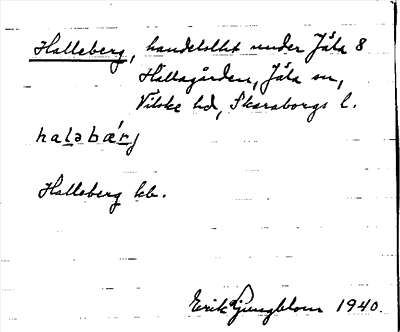 Halleberg, handelslht under Jäla 8
Hallagården, Jäla sn,
Vilske hd, Skaraborgs l.
haləbærj
Halleberg kb.
Erik Ljungblom 1940.